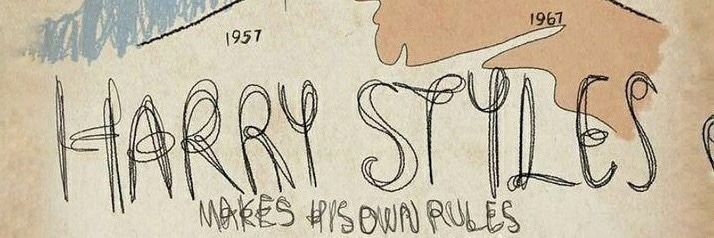 1957
1967
HARRY STYLES
MAKES HIS OWN RULES